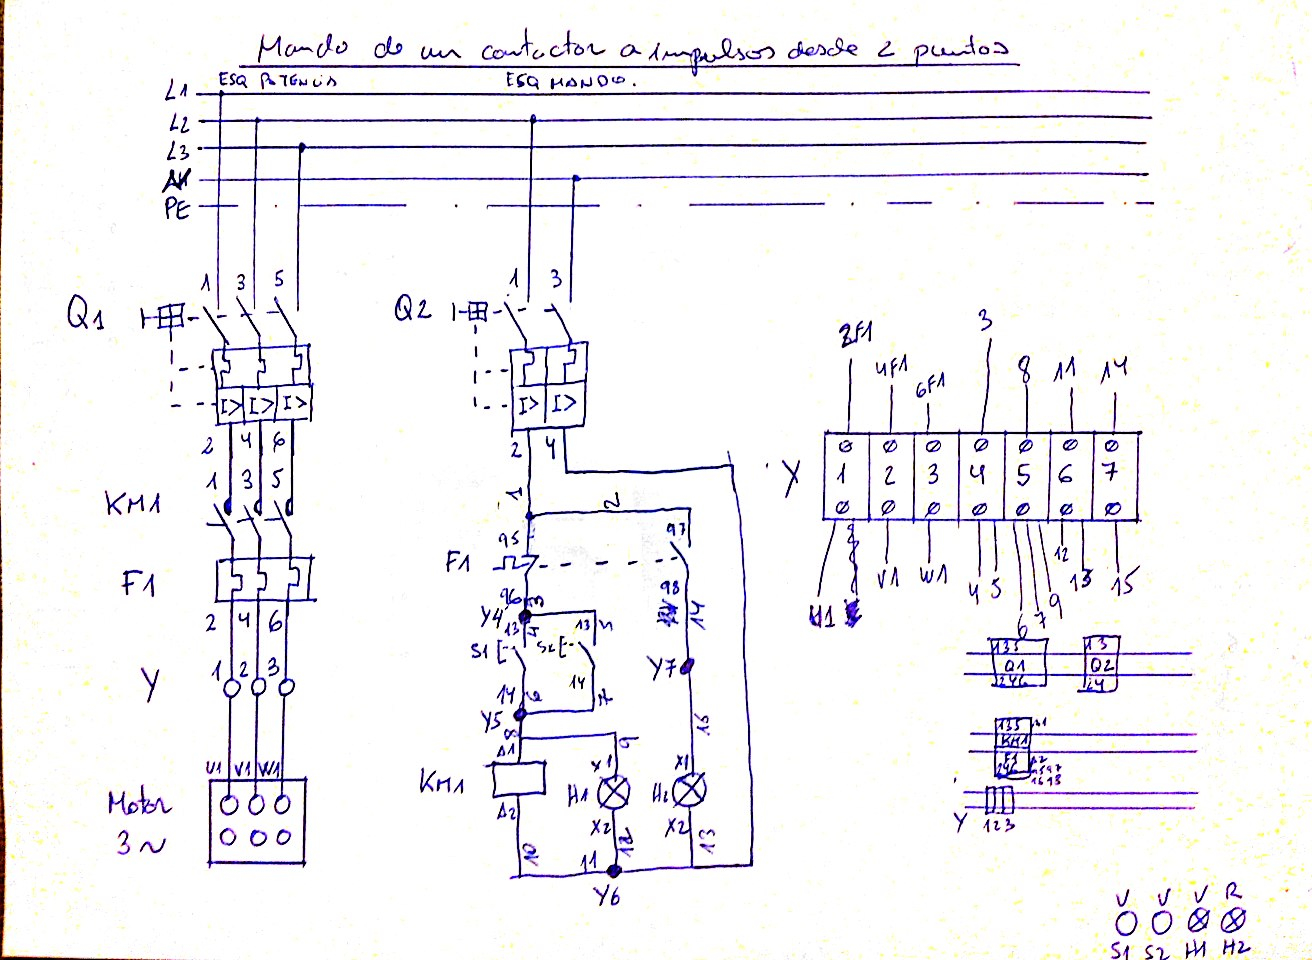 Mando de un contactor a impulsos desde 2 puntos
ESQ POTENCIA
ESQ MANDO.
L1
L2
L3
PE
1 3 5
Q1
I> I> I>
2 4 6
1 3 5
KM1
F1
2 4 6
Y
1 2 3
U1 V1 W1
Motor
3~
1 3
Q2
I> I>
2 4
1
2
95
97
F1
96
3
98
14
Y4
13
4
13
5
S1
S2
14
6
14
7
Y5
Y7
8
9
15
A1
X1
X1
KM1
H1
H2
A2
X2
X2
10
11
12
13
Y6
2F1 4F1 6F1 3 8 11 14
Y
1 2 3 4 5 6 7
U1 V1 W1 4 5 6 7 9 12 13 15
135
Q1
246
13
Q2
24
135 A1
KM1
F1 A2
246 9597
9698
Y
123
V V V R
S1 S2 H1 H2